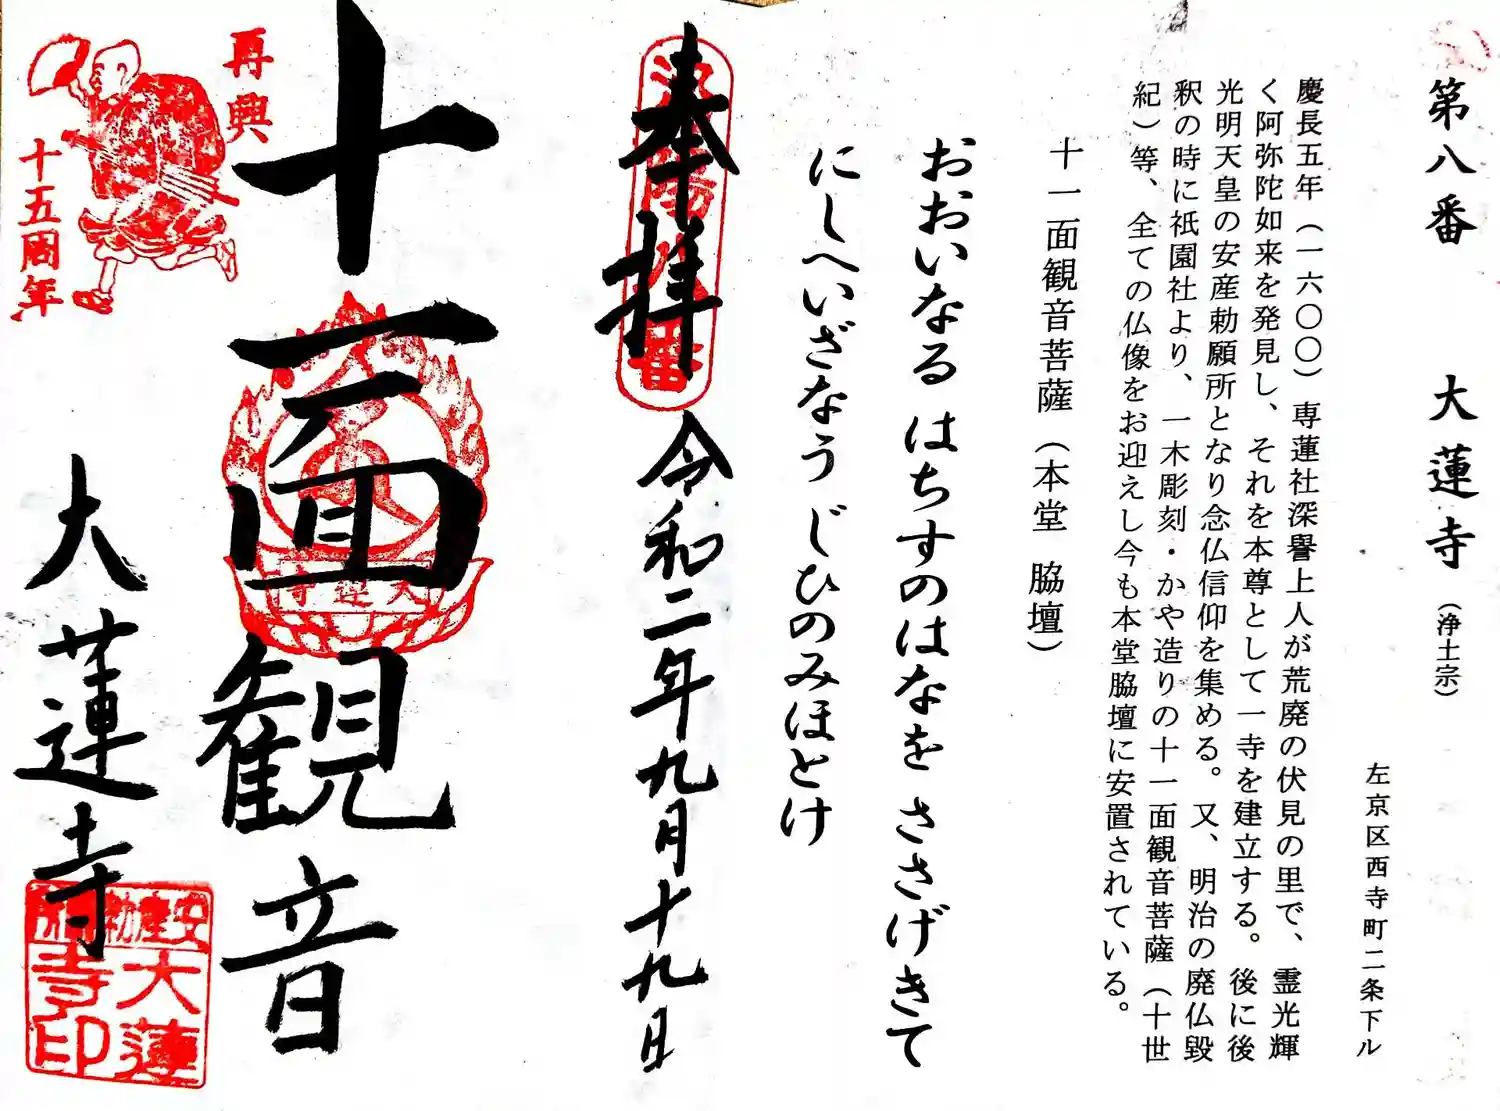 第八番 大蓮寺（浄土宗）
左京区西寺町二条下ル
慶長五年（一六〇〇）専蓮社深譽上人が荒廃の伏見の里で、霊光輝
く阿弥陀如来を発見し、それを本尊として一寺を建立する。後に後
光明天皇の安産勅願所となり念仏信仰を集める。又、明治の廃仏毀
釈の時に祇園社より、一木彫刻・かや造りの十一面観音菩薩（十世
紀）等、全ての仏像をお迎えし今も本堂脇壇に安置されている。
十一面観音菩薩（本堂 脇壇）
おおいなる はちすのはなを ささげきて
にしへいざなう じひのみほとけ
奉拝
令和二年九月十九日
十一面観音
大蓮寺
再興
十五周年
大蓮寺
安産勅願所
大蓮
寺印